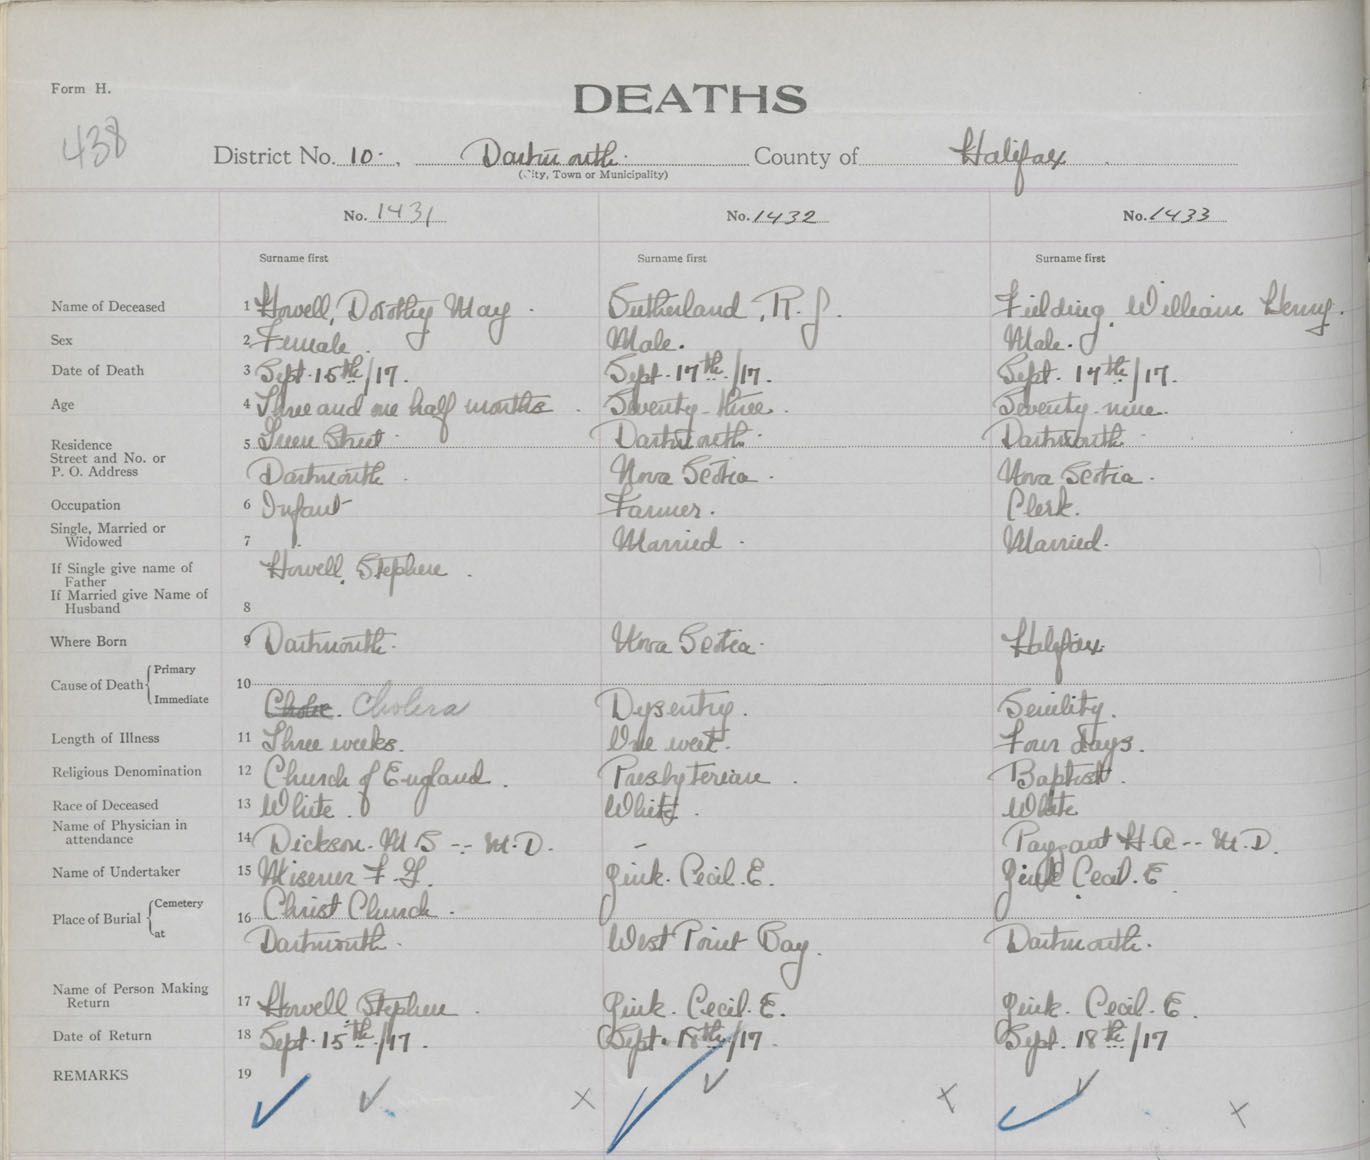 Form H.
DEATHS
438
District No. 10. , Dartmouth. County of Halifax .
(City, Town or Municipality)
No. 1431 No. 1432 No. 1433
Surname first Surname first Surname first
Name of Deceased 1 Howell, Dorothy May . Sutherland, R. J. Fielding, William Henry.
Sex 2 Female . Male. Male.
Date of Death 3 Sept. 15th/17. Sept. 17th/17. Sept. 17th/17.
Age 4 Three and one half months . Seventy-three. Seventy-nine.
Residence 5 Green Street . Dartmouth. Dartmouth
Street and No. or
P. O. Address Dartmouth . Nova Scotia . Nova Scotia .
Occupation 6 Infant Farmer. Clerk.
Single, Married or
Widowed 7 Married . Married.
If Single give name of Howell, Stephen .
Father
If Married give Name of
Husband 8
Where Born 9 Dartmouth. Nova Scotia. Halifax.
Cause of Death Primary 10
Immediate Chole. Cholera Dysentry. Senility.
Length of Illness 11 Three weeks. One week. Four days.
Religious Denomination 12 Church of England . Presbyterian . Baptist .
Race of Deceased 13 White . White . White
Name of Physician in
attendance 14 Dickson. M S -- M.D. – Payzant H.A -- M.D.
Name of Undertaker 15 Misener F. G. Zink. Cecil. E. Zink Cecil. E
Place of Burial Cemetery 16 Christ Church .
at Dartmouth . West Point Bay. Dartmouth.
Name of Person Making
Return 17 Howell Stephen . Zink. Cecil. E. Zink. Cecil. E .
Date of Return 18 Sept. 15th/17. Sept. 18th/17 . Sept. 18th/17
REMARKS 19